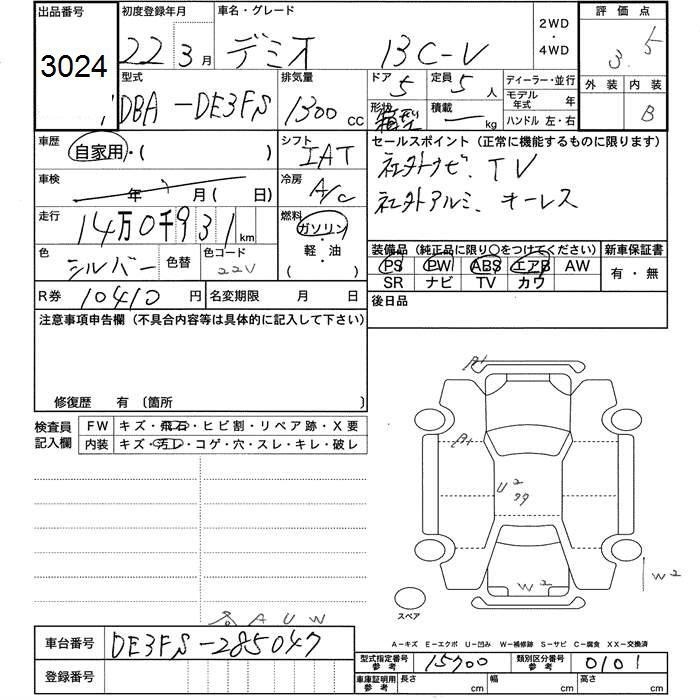 出品番号 初度登録年月 車名・グレード 2WD・4WD 評価点
3024 22 3月 デミオ 13C-V 3.5
型式 排気量 ドア 定員 ディーラー・並行 外装 内装
DBA-DE3FS 1300 CC 5 5人 モデル年式 年 B
形状 箱型 積載 kg ハンドル 左・右
車歴 自家用・( ) シフト IAT セールスポイント(正常に機能するものに限ります)
社外ナビ、TV
車検 年 月(日) 冷房 A/C 社外アルミ、キーレス
走行 14万0千931km 燃料 ガソリン・軽油 ( )
色 シルバー 色替 色コード 22V
装備品(純正品に限り○をつけてください) 新車保証書
PS PW ABS エアB AW 有・無
SR ナビ TV カワ
R券 10410円 名変期限 月 日 後日品
注意事項申告欄(不具合内容等は具体的に記入して下さい)
修復歴 有 〔箇所 〕
検査員記入欄 FW キズ・飛石・ヒビ割・リペア跡・X要
内装 キズ・汚レ・コゲ・穴・スレ・キレ・破レ
A1
A1
U2
W2
W2
スペア
A U W
A-キズ E-エクボ U-凹み W-補修跡 S-サビ C-腐食 XX-交換済
車台番号 DE3FS-285047
型式指定番号参考 15700 類別区分番号参考 0101
登録番号
車庫証明用参考 長さ cm 幅 cm 高さ cm